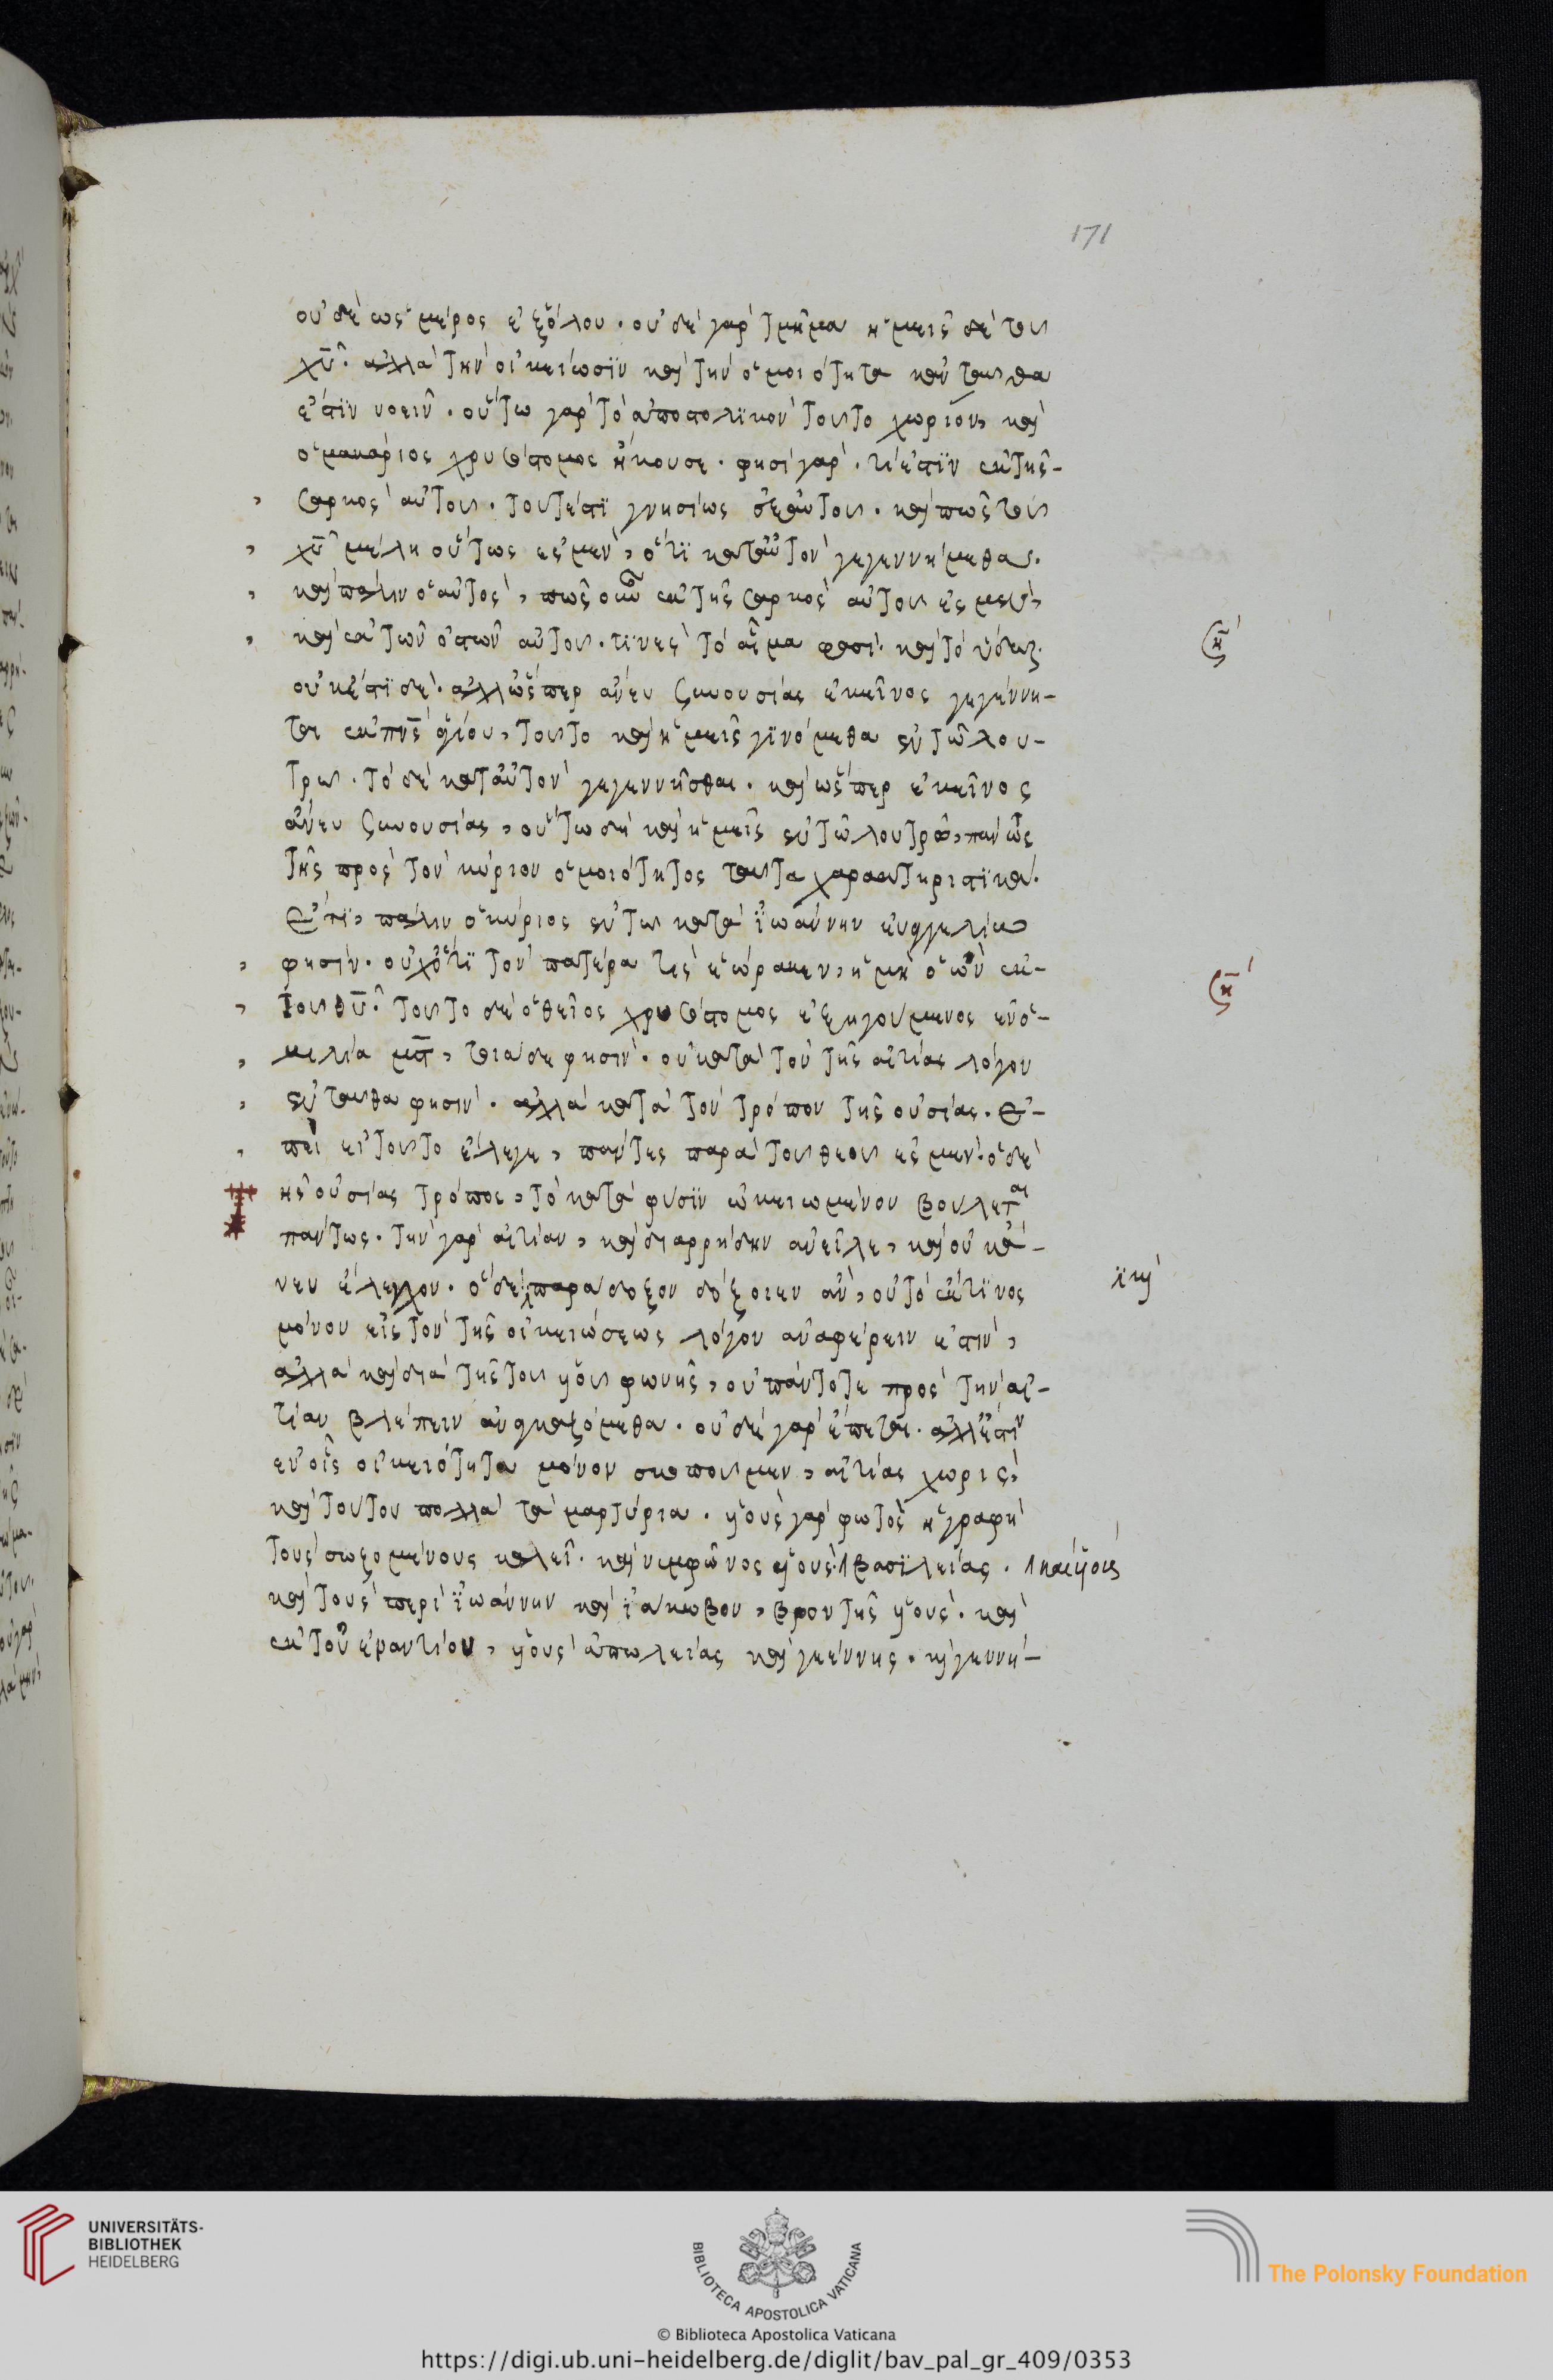 171
οὐδέ ὡς μέρος ἐξ ὅλου. οὐδέ γὰρ τμῆμα ἡμεῖς δέ τοῦ
χῦ. ἀλλὰ τὴν οἰκείωσϊν καὶ τὴν ὁμοιότητα κἀνταῦθα
ἐστϊν νοεῖν. οὕτω γὰρ τὸ ἀποστολϊκὸν τοῦτο χωρίον, καὶ
ὁ μακάριος χρυσόστομος ἤκουσε. φησὶ γὰρ. τί ἐστϊν ἐκ τῆς
σαρκὸς αὐτοῦ. τουτέστϊ γνησίως ἐξ αὐτοῦ. καὶ πῶς τοῦ
χῦ μέλη οὕτως ἐσμὲν, ὅτϊ κατ αὐτὸν γεγεννήμεθα.
καὶ πάλιν ὁ αὐτὸς, πῶς οὖν ἐκ τῆς σαρκὸς αὐτοῦ ἐσμεν,
καὶ ἐκ τῶν ὀστῶν αὐτοῦ. τϊνες τὸ αἷμα φασὶ. καὶ τὸ ὕδωρ.
οὐκ ἔστϊ δέ. ἀλλ ὥσπερ ἄνευ συνουσίας ἐκεῖνος γεγέννη-
ται ἐκ πνς ἁγίου, τοῦτο καὶ ἡμεῖς γϊνόμεθα ἐν τῶ λου-
τρῶ. τὸ δέ κατ αὐτὸν γεγεννῆσθαι. καὶ ὥσπερ ἐκεῖνος
ἄνευ συνουσίας, οὕτω δὴ καὶ ἡμεῖς ἐν τῶ λουτρῶ, πάντως
τῆς πρὸς τὸν κύριον ὁμοιότητος ταῦτα χαρακτηριστϊκά.
ἔτϊ, πάλιν ὁ κύριος ἐν τῶ κατὰ ϊωάννην εὐαγγελίω
φησίν. οὐχ ὅτϊ τὸν πατέρα τὶς ἑώρακεν, ἢ μὴ ὁ ὢν ἐκ
τοῦ θῦ. τοῦτο δέ ὁ θεῖος χρυσόστομος ἐξηγούμενος ἐν ὁ-
μιλία, τοιάδε φησίν. οὐ κατὰ τὸν τῆς αἰτίας λόγον
ἐνταῦθα φησίν. ἀλλὰ κατὰ τὸν τρόπον τῆς οὐσίας. ἐ-
πεὶ εἰ τοῦτο ἔλεγε, πάντες παρὰ τοῦ θεοῦ ἐσμεν. ὁ δέ
τῆς οὐσίας τρόπος, τὸ κατὰ φύσϊν ὠκειωμένον βούλεται
πάντως. τὴν γὰρ αἰτίαν, καὶ διαρρήδην ἀνεῖλε, καὶ οὐ κἀ-
νεν ἔλεγχον. ὁ δέ παράδοξον δόξοιεν ἄν, οὐ τὸ ἔκ τϊνος
μόνον εἰς τὸν τῆς οἰκειώσεως λόγον ἀναφέρειν ἐστίν,
ἀλλὰ καὶ διὰ τῆς τοῦ υἱοῦ φωνῆς, οὐ πάντοτε πρὸς τὴν αἰ-
τίαν βλέπειν ἀναγκαζόμεθα. οὐδέ γὰρ ἕπεται. ἀλλ ἔστϊν
ἐν οἷς οἰκειότητα μόνον σκοποῦμεν, αἰτίας χωρὶς,
καὶ τούτου πολλὰ τὰ μαρτύρια. υἱοὺς γὰρ φωτὸς ἡ γραφὴ
τοὺς σωζομένους καλεῖ. καὶ νυμφῶνος υἱοὺς βασϊλείας. καὶ υἱοὺς
καὶ τοὺς περὶ ϊωάννην καὶ ϊάκωβον, βροντῆς υἱοὺς. καὶ
ἐκ τοῦ ἐναντίου, υἱοὺς ἀπωλείας καὶ γεέννης. καὶ γεννή-
UNIVERSITÄTS-
BIBLIOTHEK
HEIDELBERG
BIBLIOTECA APOSTOLICA VATICANA
The Polonsky Foundation
© Biblioteca Apostolica Vaticana
https://digi.ub.uni-heidelberg.de/diglit/bav_pal_gr_409/0353